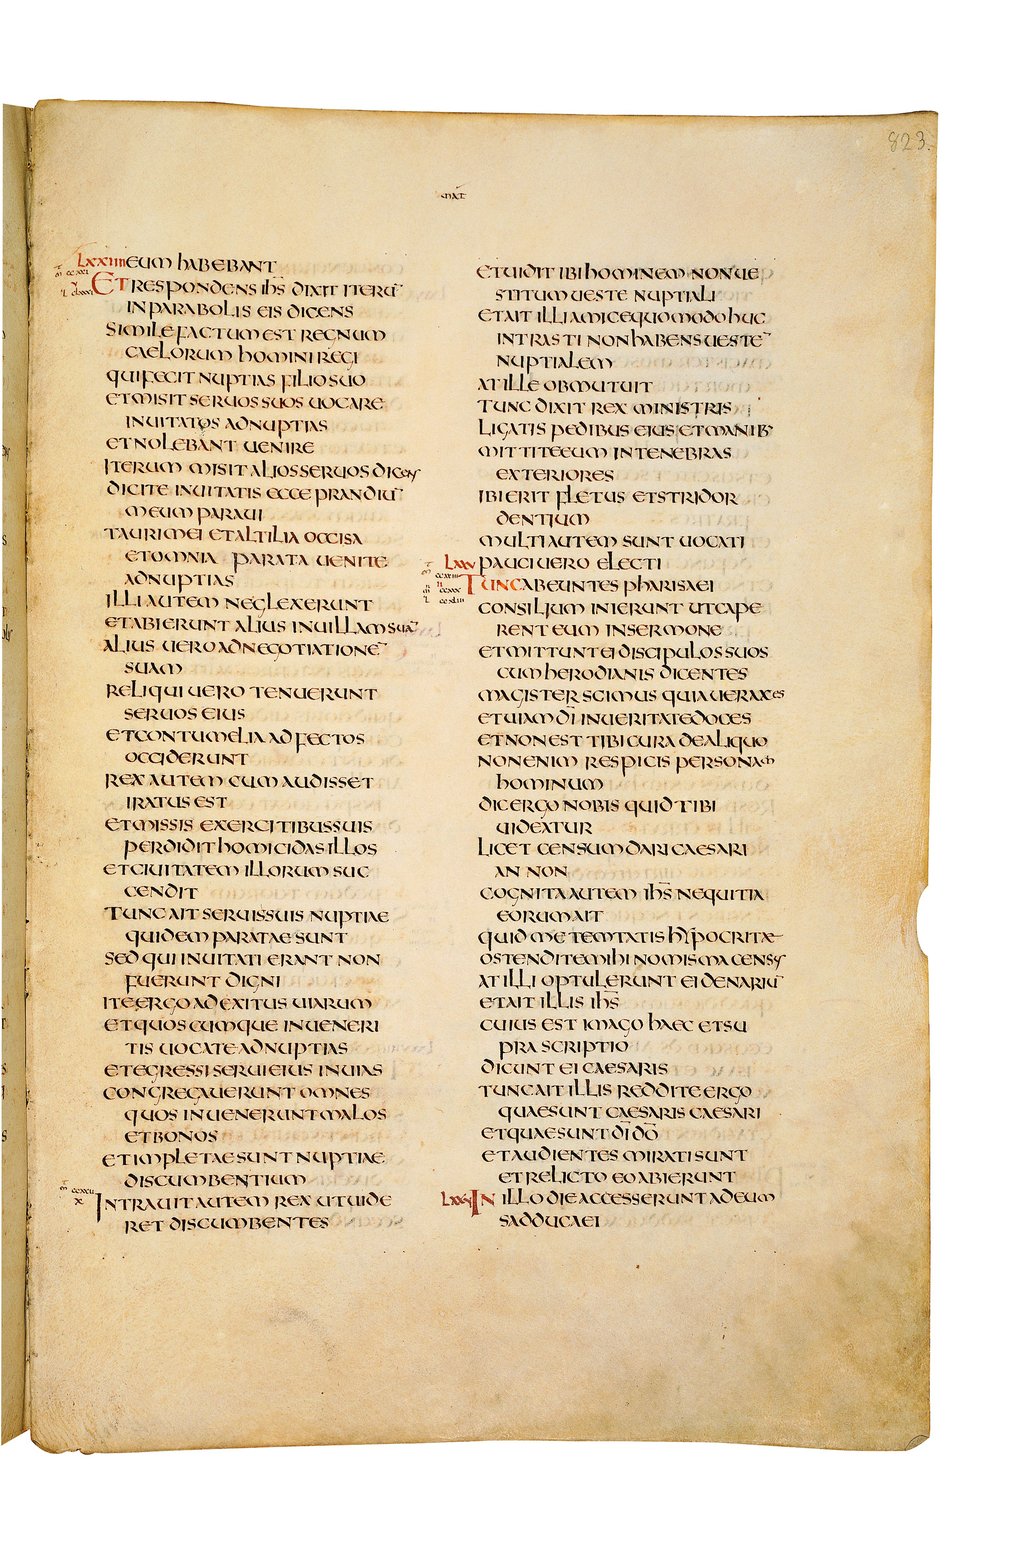 823.
MAT
LXXIIII EUM HABEBANT
ET RESPONDENS IHS DIXIT ITERŪ
IN PARABOLIS EIS DICENS
SIMILE FACTUM EST REGNUM
CAELORUM HOMINI REGI
QUI FECIT NUPTIAS FILIO SUO
ET MISIT SERUOS SUOS UOCARE
INUITATOS AD NUPTIAS
ET NOLEBANT UENIRE
ITERUM MISIT ALIOS SERUOS DICENS
DICITE INUITATIS ECCE PRANDIŪ
MEUM PARAUI
TAURI MEI ET ALTILIA OCCISA
ET OMNIA PARATA UENITE
AD NUPTIAS
ILLI AUTEM NEGLEXERUNT
ET ABIERUNT ALIUS IN UILLAM SUĀ
ALIUS UERO AD NEGOTIATIONĒ
SUAM
RELIQUI UERO TENUERUNT
SERUOS EIUS
ET CONTUMELIA ADFECTOS
OCCIDERUNT
REX AUTEM CUM AUDISSET
IRATUS EST
ET MISSIS EXERCITIBUS SUIS
PERDIDIT HOMICIDAS ILLOS
ET CIUITATEM ILLORUM SUC
CENDIT
TUNC AIT SERUIS SUIS NUPTIAE
QUIDEM PARATAE SUNT
SED QUI INUITATI ERANT NON
FUERUNT DIGNI
ITE ERGO AD EXITUS UIARUM
ET QUOSCUMQUE INUENERI
TIS UOCATE AD NUPTIAS
ET EGRESSI SERUI EIUS IN UIAS
CONGREGAUERUNT OMNES
QUOS INUENERUNT MALOS
ET BONOS
ET IMPLETAE SUNT NUPTIAE
DISCUMBENTIUM
INTRAUIT AUTEM REX UT UIDE
RET DISCUMBENTES
ET UIDIT IBI HOMINEM NON UE
STITUM UESTE NUPTIALI
ET AIT ILLI AMICE QUOMODO HUC
INTRASTI NON HABENS UESTĒ
NUPTIALEM
AT ILLE OBMUTUIT
TUNC DIXIT REX MINISTRIS
LIGATIS PEDIBUS EIUS ET MANIB·
MITTITE EUM IN TENEBRAS
EXTERIORES
IBI ERIT FLETUS ET STRIDOR
DENTIUM
MULTI AUTEM SUNT UOCATI
LXXV PAUCI UERO ELECTI
TUNC ABEUNTES PHARISAEI
CONSILIUM INIERUNT UT CAPE
RENT EUM IN SERMONE
ET MITTUNT EI DISCIPULOS SUOS
CUM HERODIANIS DICENTES
MAGISTER SCIMUS QUIA UERAX ES
ET UIAM DĪ IN UERITATE DOCES
ET NON EST TIBI CURA DE ALIQUO
NON ENIM RESPICIS PERSONAM
HOMINUM
DIC ERGO NOBIS QUID TIBI
UIDEATUR
LICET CENSUM DARI CAESARI
AN NON
COGNITA AUTEM IHS NEQUITIA
EORUM AIT
QUID ME TEMTATIS HYPOCRITAE
OSTENDITE MIHI NOMISMA CENSUS
AT ILLI OPTULERUNT EI DENARIŪ
ET AIT ILLIS IHS
CUIUS EST IMAGO HAEC ET SU
PRASCRIPTIO
DICUNT EI CAESARIS
TUNC AIT ILLIS REDDITE ERGO
QUAE SUNT CAESARIS CAESARI
ET QUAE SUNT DĪ DŌ
ET AUDIENTES MIRATI SUNT
ET RELICTO EO ABIERUNT
LXXVI IN ILLO DIE ACCESSERUNT AD EUM
SADDUCAEI